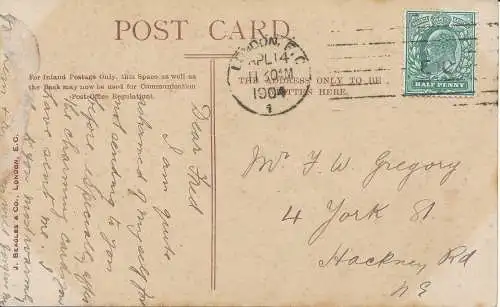 POST CARD.
For Inland Postage Only, this Space as well as
the Back may now be used for Communication
(Post-Office Regulation).
THE ADDRESS ONLY TO BE
WRITTEN HERE.
LONDON, E.C.
APL 14
11 30AM
1904
1
HALF PENNY
J. BEAGLES & CO., LONDON, E.C.
Dear Fred
I am quite
ashamed of myself for
not sending to you
before especially after
the charming cards you
have sent me. I
to you
Mr F. W. Gregory
4 York St
Hackney Rd
N E